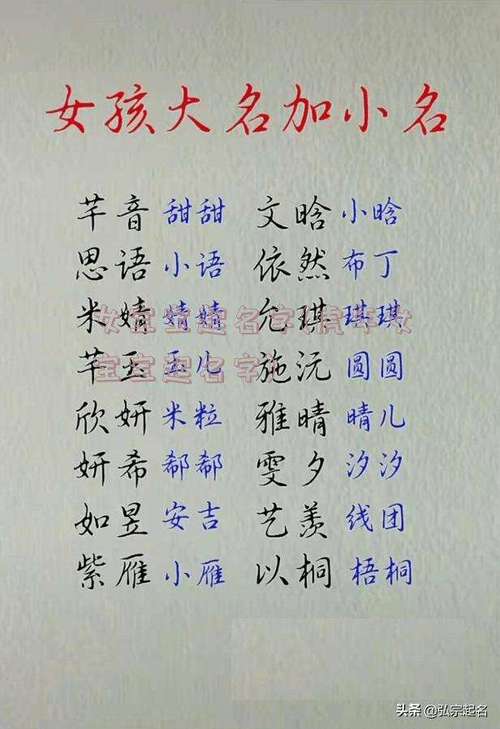 女孩大名加小名
芊音 甜甜 文晗 小晗
思语 小语 依然 布丁
米婧 婧婧 允琪 琪琪
芊玉 玉儿 施沅 圆圆
欣妍 米粒 雅晴 晴儿
妍希 郗郗 雯夕 汐汐
如昱 安吉 艺羡 线团
紫雁 小雁 以桐 梧桐
宝宝起名字
头条 @弘宗起名